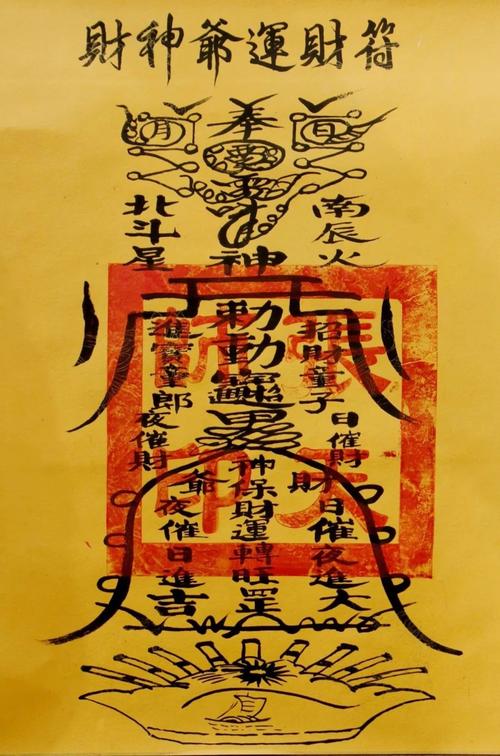 財神爺運財符
奉
南辰火
北斗星
神
敕動
招財童子日催財
進寶童郎夜催財
財日催夜進大
神保財運轉旺罡
爺夜催日進吉
張天師印